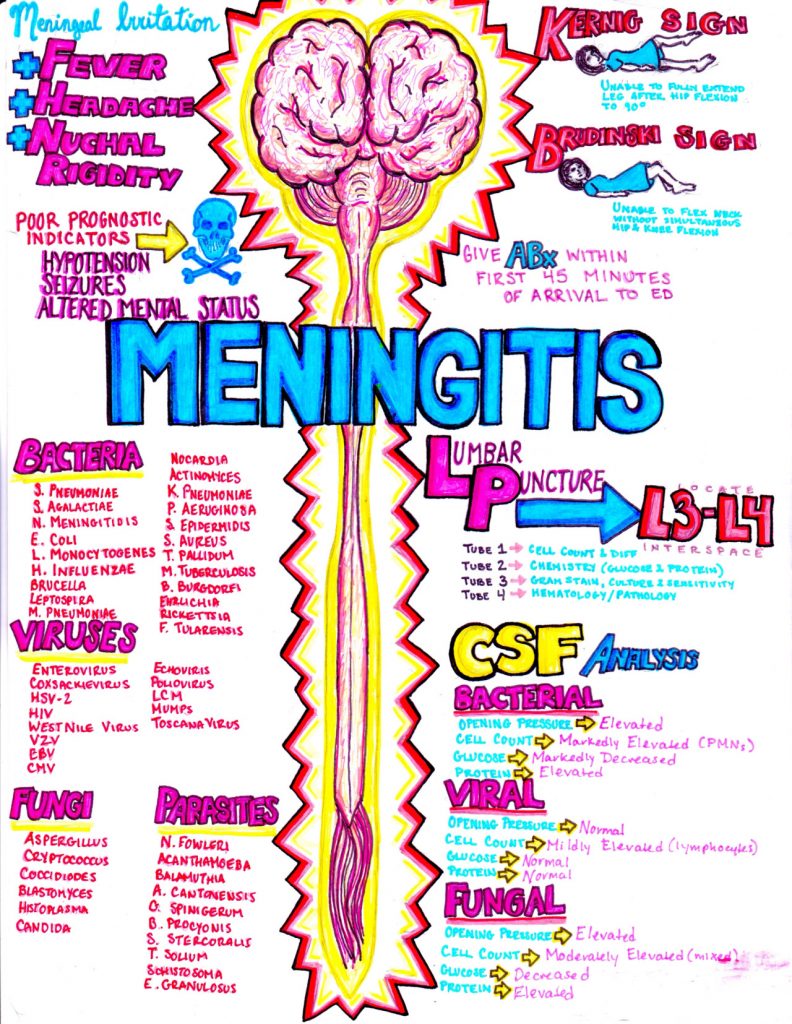 Meningeal Irritation
+ FEVER
+ HEADACHE
+ NUCHAL
RIGIDITY
POOR PROGNOSTIC
INDICATORS
HYPOTENSION
SEIZURES
ALTERED MENTAL STATUS
KERNIG SIGN
UNABLE TO FULLY EXTEND
LEG AFTER HIP FLEXION
TO 90°
BRUDINSKI SIGN
UNABLE TO FLEX NECK
WITHOUT SIMULTANEOUS
HIP & KNEE FLEXION
GIVE ABx WITHIN
FIRST 45 MINUTES
OF ARRIVAL TO ED
MENINGITIS
BACTERIA
S. PNEUMONIAE
S. AGALACTIAE
N. MENINGITIDIS
E. COLI
L. MONOCYTOGENES
H. INFLUENZAE
BRUCELLA
LEPTOSPIRA
M. PNEUMONIAE
NOCARDIA
ACTINOMYCES
K. PNEUMONIAE
P. AERUGINOSA
S. EPIDERMIDIS
S. AUREUS
T. PALLIDUM
M. TUBERCULOSIS
B. BURGDORFI
EHRLICHIA
RICKETTSIA
F. TULARENSIS
VIRUSES
ENTEROVIRUS
COXSACKIEVIRUS
HSV-2
HIV
WEST NILE VIRUS
VZV
EBV
CMV
ECHOVIRIS
POLIOVIRUS
LCM
MUMPS
TOSCANA VIRUS
FUNGI
ASPERGILLUS
CRYPTOCOCCUS
COCCIDIODES
BLASTOMYCES
HISTOPLASMA
CANDIDA
PARASITES
N. FOWLERI
ACANTHAMOEBA
BALAMUTHIA
A. CANTONENSIS
G. SPINIGERUM
B. PROCYONIS
S. STERCORALIS
T. SOLIUM
SCHISTOSOMA
E. GRANULOSUS
LUMBAR
PUNCTURE
LOCATE
L3-L4
INTERSPACE
TUBE 1 → CELL COUNT & DIFF
TUBE 2 → CHEMISTRY (GLUCOSE & PROTEIN)
TUBE 3 → GRAM STAIN, CULTURE & SENSITIVITY
TUBE 4 → HEMATOLOGY/PATHOLOGY
CSF ANALYSIS
BACTERIAL
OPENING PRESSURE → Elevated
CELL COUNT → Markedly Elevated (PMNs)
GLUCOSE → Markedly Decreased
PROTEIN → Elevated
VIRAL
OPENING PRESSURE → Normal
CELL COUNT → Mildly Elevated (lymphocytes)
GLUCOSE → Normal
PROTEIN → Normal
FUNGAL
OPENING PRESSURE → Elevated
CELL COUNT → Moderately Elevated (mixed)
GLUCOSE → Decreased
PROTEIN → Elevated